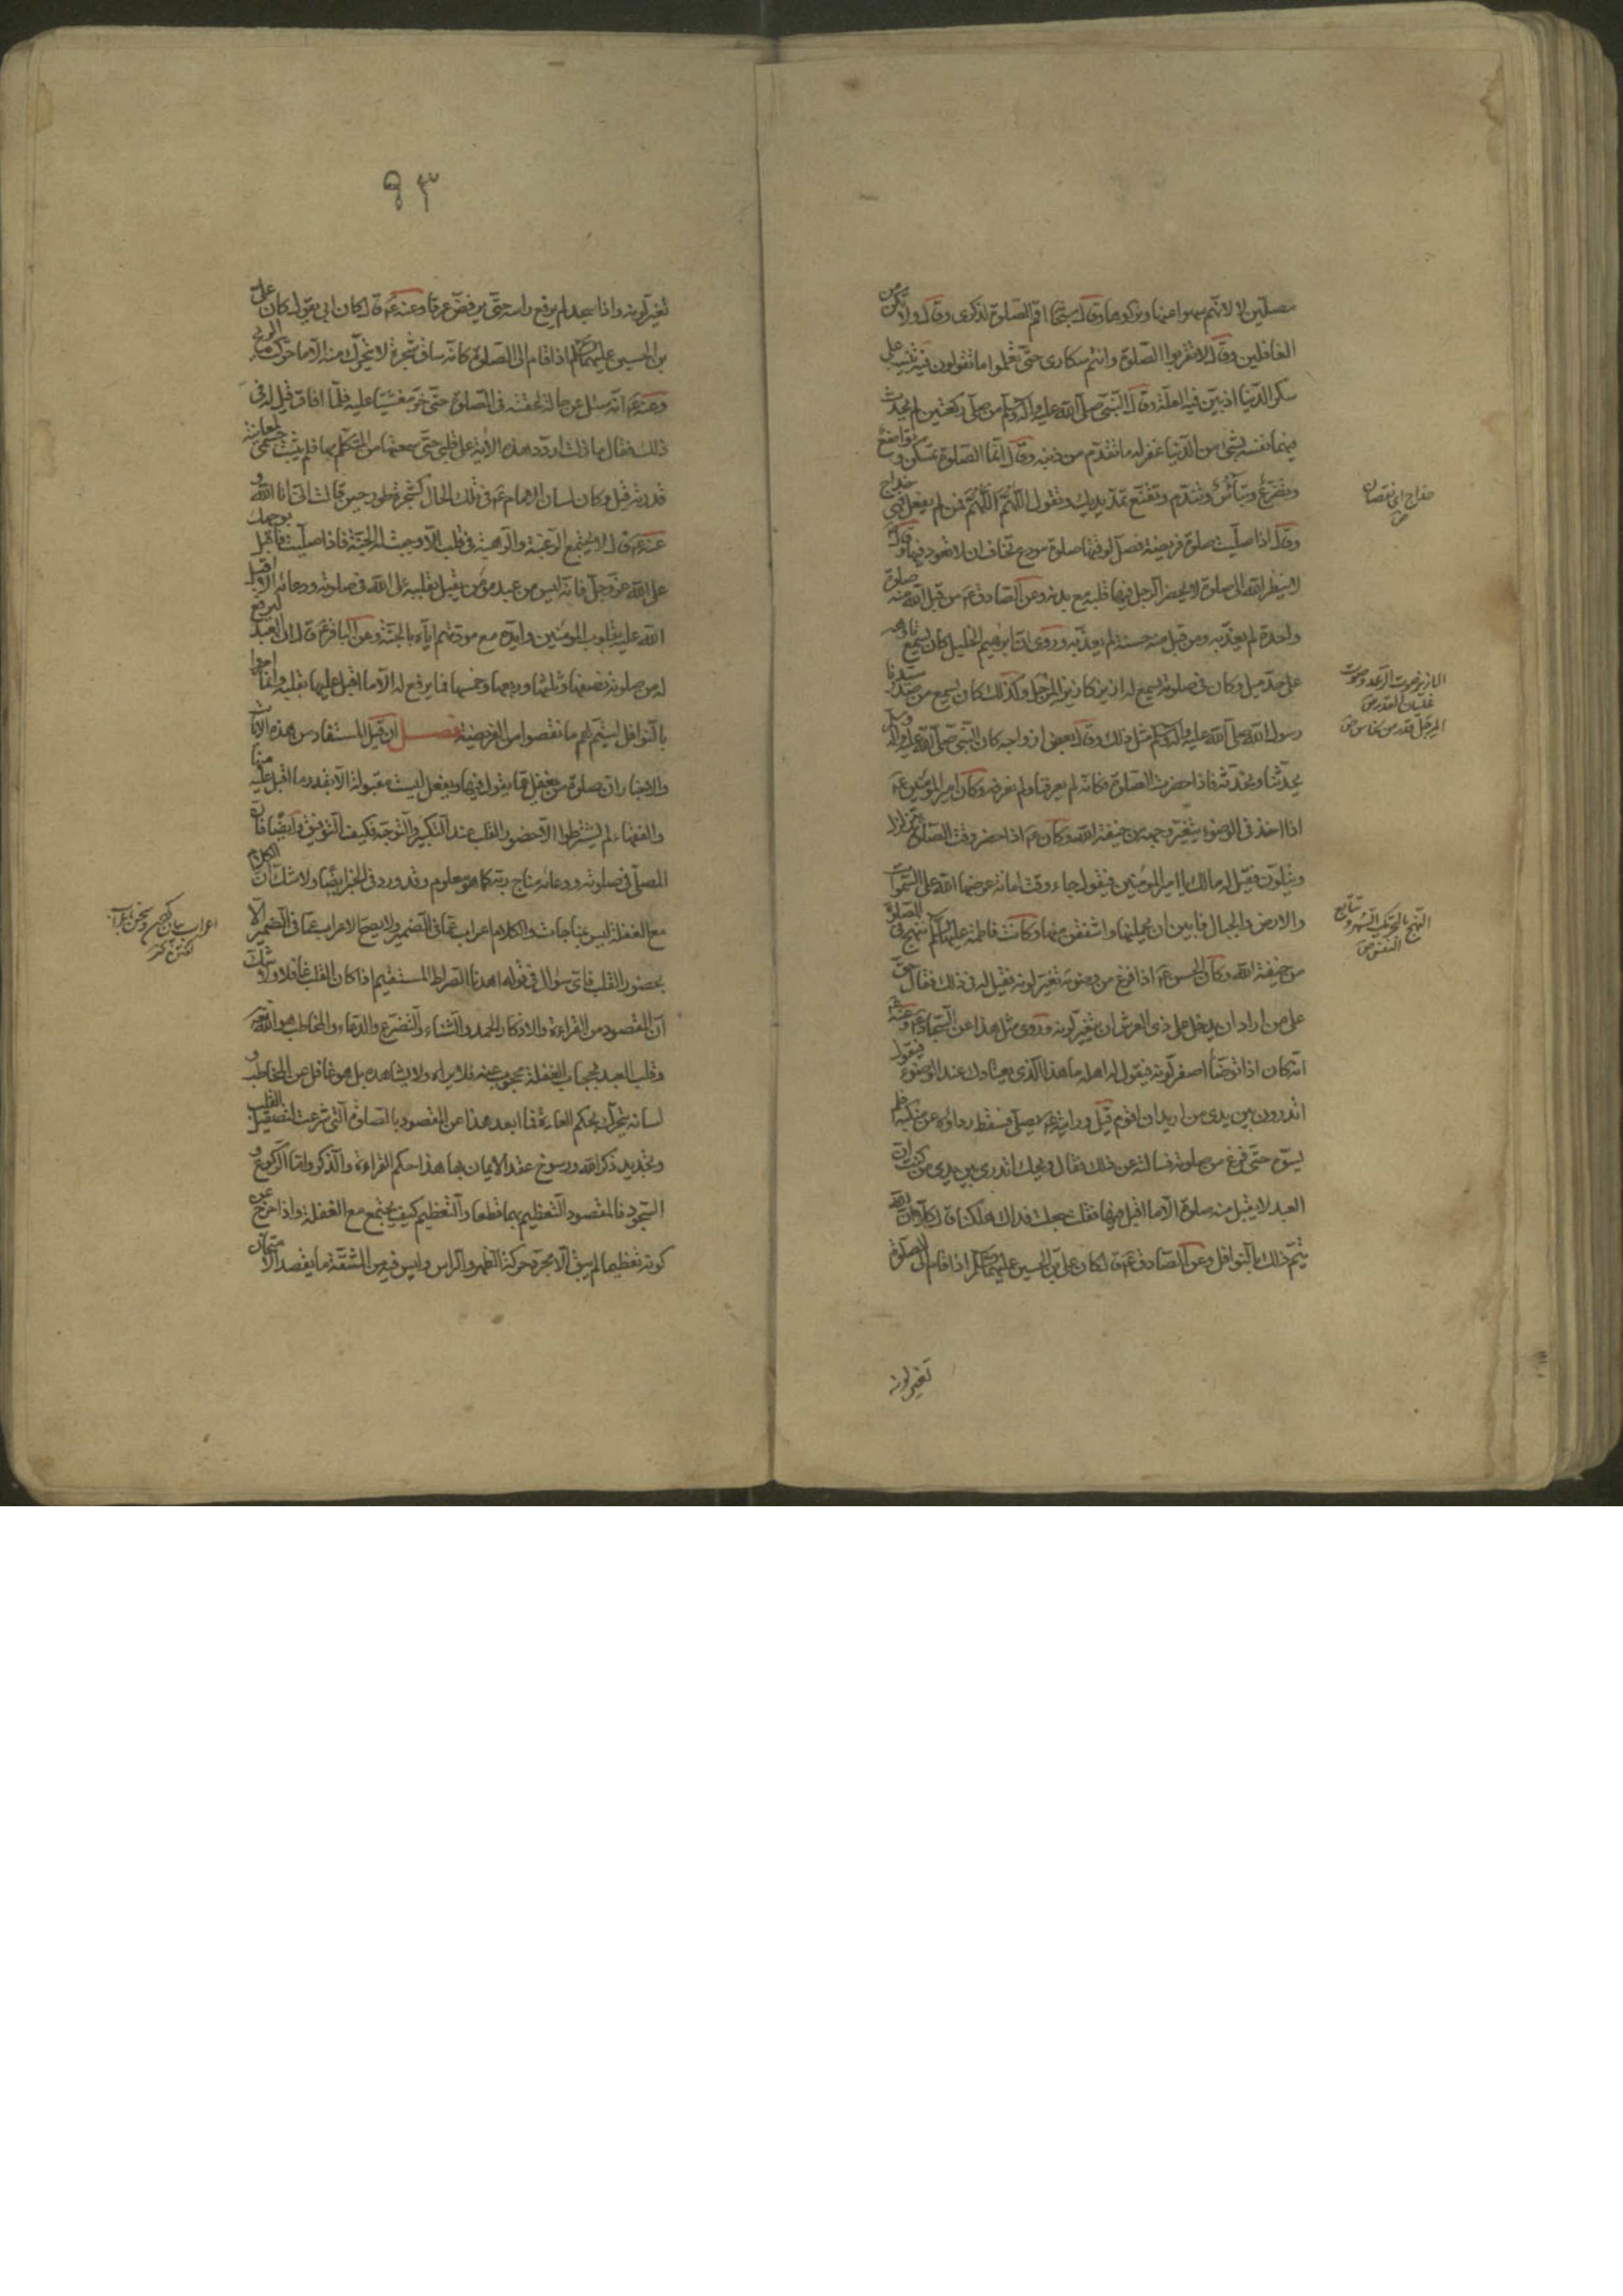 مصلّين لا لانّهم سهوا عنها وتركوها وقال سبحانه اقم الصّلوة لذكرى وقال ولا تكن من
الغافلين وقال لا تقربوا الصّلوة وانتم سكارى حتّى تعلموا ما تقولون فيه تنبيه على
سكر الدّنيا اذ بيّن فيه العلّة وقال النّبىّ صلّى الله عليه وآله وسلّم من صلّى ركعتين لم يحدث
فيهما نفسه بشئ من الدّنيا غفر له ما تقدّم من ذنبه وقال انّما الصّلوة تمسكن وتواضع
وتضرّع وتبأس وتندّم وتقنّع بمدّ يديك وتقول اللّهمّ اللّهمّ فمن لم يفعل فهى خداج
وقال اذا صلّيت صلوة فريضة فصلّ لوقتها صلوة مودع تخاف ان لا تعود فيها وقال
لا ينظر الله الى صلوة لا يحضر الرّجل فيها قلبه مع بدنه وعن الصّادق ع من قبل الله منه صلوة
واحدة لم يعذّبه ومن قبل منه حسنة لم يعذّبه وروى انّ ابرهيم الخليل كان يسمع تأوّهه
على حدّ ميل وكان فى صلوته يسمع له ازيز كازيز المرجل وكذلك كان يسمع من صدر سيّدنا
رسول الله صلّى الله عليه وآله وسلّم مثل ذلك وقال بعض ازواجه كان النّبىّ صلّى الله عليه وآله وسلّم
يحدّثنا ونحدّثه فاذا حضرت الصّلوة فكانّه لم يعرفنا ولم نعرفه وكان امير المؤمنين ع
اذا اخذ فى الوضوء يتغيّر وجهه من خيفة الله وكان ع اذا حضر وقت الصّلوة يتزلزل
ويتلوّن فقيل له مالك يا امير المؤمنين فيقول جاء وقت امانة عرضها الله على السّموات
والارض والجبال فابين ان يحملنها واشفقن منها وكانت فاطمة عليها السّلم تنهج فى الصّلوة
من خيفة الله وكان الحسن ع اذا فرغ من وضوئه تغيّر لونه فقيل له فى ذلك فقال حقّ
على من اراد ان يدخل على ذى العرش ان يتغيّر لونه وروى مثل هذا عن السّجّاد ع وعنه ع
انّه كان اذا توضّأ اصفرّ لونه فيقول له اهله ما هذا الّذى يعتادك عند الوضوء فيقول
اتدرون بين يدى من اريد ان اقوم قيل وراٮته ع يصلّى فسقط رداؤه عن منكبه فلم
يسوّه حتّى فرغ من صلوته فسالته عن ذلك فقال ويحك اتدرى بين يدى من كنت انّ
العبد لا يقبل منه صلوة الّا ما اقبل فيها فقلت جعلت فداك هلكنا قال كلّا انّ الله
يتمّ ذلك بالنّوافل وعن الصّادق ع قال كان علىّ بن الحسين عليهما السّلم اذا قام الى الصّلوة
تغيّر لونه
خداج اى نقصان
ص
الازيز صوت الرّعد وصوت
غليان القدر ص
المرجل قدر من نحاس ص
النّهج بالتّحريك البُهر وتتابع
النّفس ص
٩٣
تغيّر لونه واذا سجد لم يرفع راسه حتّى يرفضّ عرقا وعنه ع قال كان ابى يقول كان علىّ
بن الحسين عليهما السّلم اذا قام الى الصّلوة كانّه ساق شجرة لا يتحرّك منه الّا ما حرّكت الريح
وعنه ع انّه سئل عن حالة لحقته فى الصّلوة حتّى خرّ مغشيّا عليه فلمّا افاق قيل له فى
ذلك فقال ما زلت اردّد هذه الآية على قلبى حتّى سمعتها من المتكلّم بها فلم يثبت جسمى لمعاينة
قدرته قيل وكان لسان الامام ع فى تلك الحال كشجرة طور حين قالت انّى انا الله و
عنه ع قال لا يجتمع الرّغبة والرّهبة فى قلب الّا وجبت له الجنّة فاذا صلّيت فاقبل بوجهك
على الله عزّ وجلّ فانّه ليس من عبد مؤمن يقبل بقلبه على الله فى صلوته ودعائه الّا اقبل
الله عليه بقلوب المؤمنين وايّده مع مودّتهم ايّاه بالجنّة وعن الباقر ع قال انّ العبد ليرفع
له من صلوته نصفها وثلثها وربعها وخمسها فما يرفع له الّا ما اقبل عليها بقلبه وانّما امروا
بالنّوافل ليتمّ لهم ما نقصوا من الفريضة فصل ان قيل المستفاد من هذه الآيات
والاخبار انّ صلوة من يغفل عمّا يقول فيها ويفعل ليست مقبولة الّا بقدر ما اقبل عليه منها
والفقهاء لم يشترطوا الّا حضور القلب عند التّكبير والتّوجّه فكيف التّوفيق وايضًا فانّ
المصلّى فى صلوته ودعائه مناج ربّه كما هو معلوم وقد ورد فى الخبر ايضًا ولا شكّ انّ الكلام
مع الغفلة ليس بمناجات والكلام اعراب عمّا فى الضّمير ولا يصحّ الاعراب عمّا فى الضّمير الّا
بحضور القلب فاىّ سؤال فى قوله اهدنا الصّراط المستقيم اذا كان القلب غافلا ولا شكّ
انّ المقصود من القراءة والاذكار الحمد والثّناء والتّضرّع والدّعاء والمخاطب هو الله تعالى
وقلب العبد بحجاب الغفلة محجوب عنه فلا يراه ولا يشاهده بل هو غافل عن المخاطب و
لسانه يتحرّك بحكم العادة فما ابعد هذا عن المقصود بالصّلوة الّتى شرعت لتصقيل القلب
وتجديد ذكر الله ورسوخ عقد الايمان بها هذا حكم القراءة والذّكر وامّا الرّكوع و
السّجود فالمقصود التّعظيم بهما قطعا والتّعظيم كيف يجتمع مع الغفلة واذا خرج عن
كونه تعظيما لم يبق الّا مجرّد حركة الظّهر والرّاس وليس فيه من المشقّة ما يقصد الامتحان